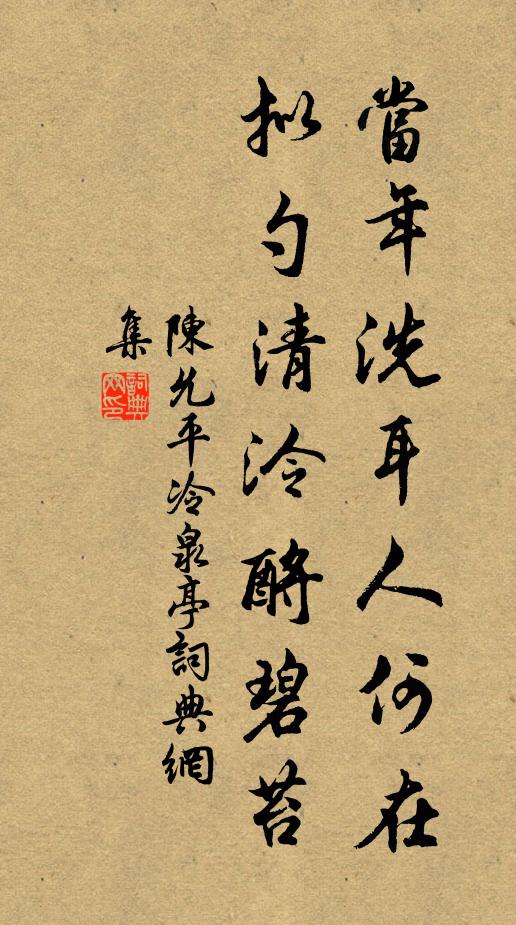 當年洗耳人何在
拟勺清泠酹碧苔
陳允平冷泉亭詞典網
集
詞典網印